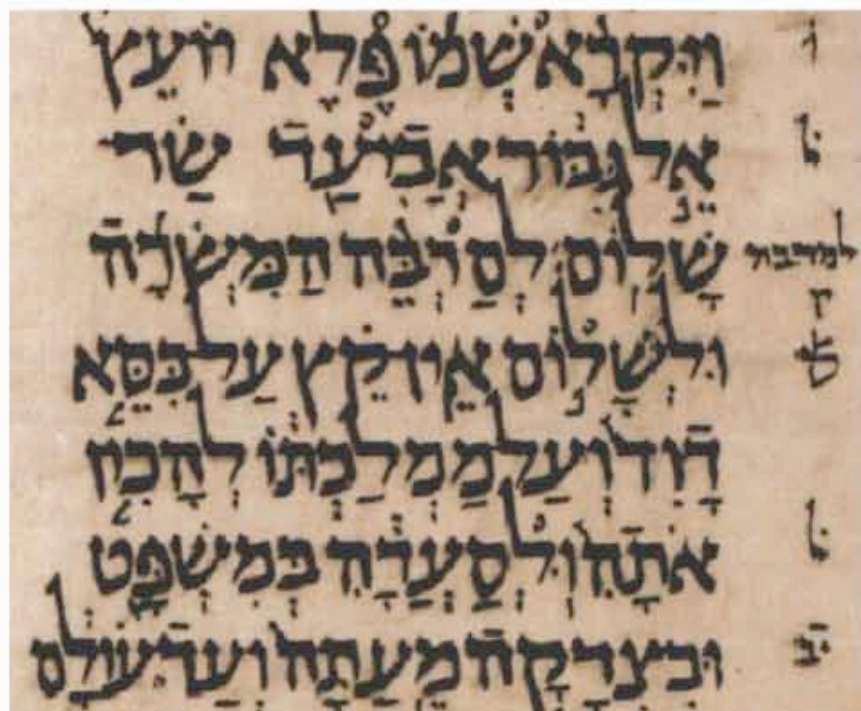 וַיִּקְרָא שְׁמוֹ פֶּלֶא יוֹעֵץ
אֵל גִּבּוֹר אֲבִי־עַד שַׂר־
שָׁלוֹם׃ לְםַרְבֵּה הַמִּשְׂרָה
וּלְשָׁלוֹם אֵין־קֵץ עַל־כִּסֵּא
דָוִד וְעַל־מַמְלַכְתּוֹ לְהָכִין
אֹתָהּ וּלְסַעֲדָהּ בְּמִשְׁפָּט
וּבִצְדָקָה מֵעַתָּה וְעַד־עוֹלָם
ל
למרבה
ק
ל
יב